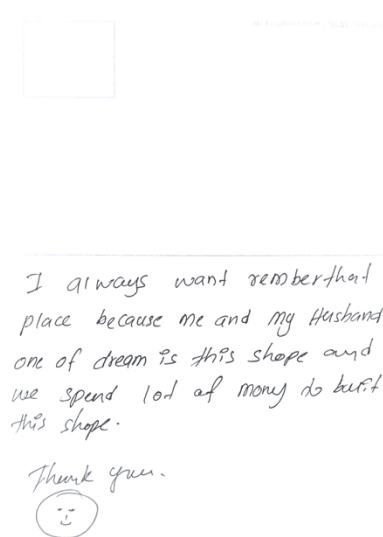 I always want remberthat
place because me and my Husband
one of dream is this shope and
we spend lot of mony to built
this shope.
Thank you.